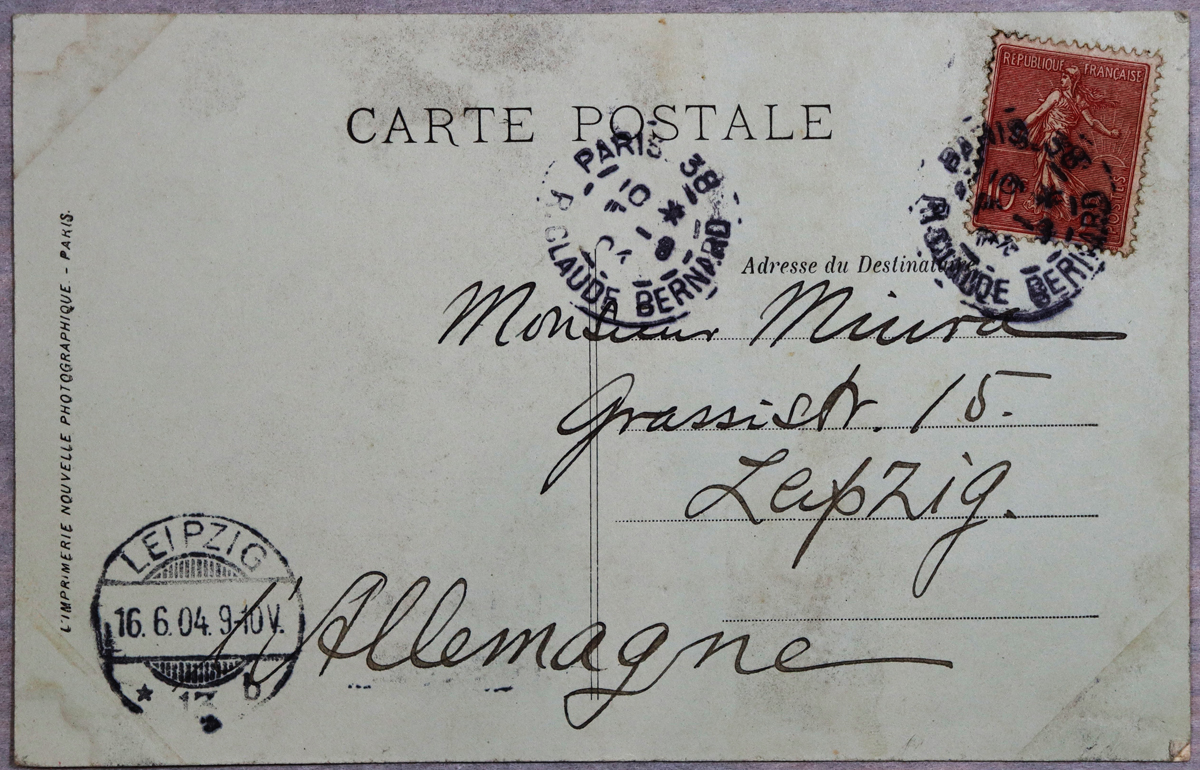 RÉPUBLIQUE FRANÇAISE
10
POSTES
CARTE POSTALE
PARIS 38
R. CLAUDE BERNARD
PARIS 38
R. CLAUDE BERNARD
Adresse du Destinataire
Monsieur Miura
Grassistr. 15.
Leipzig.
l'Allemagne
LEIPZIG
16.6.04.9-10V.
* 13 b
L'IMPRIMERIE NOUVELLE PHOTOGRAPHIQUE - PARIS.